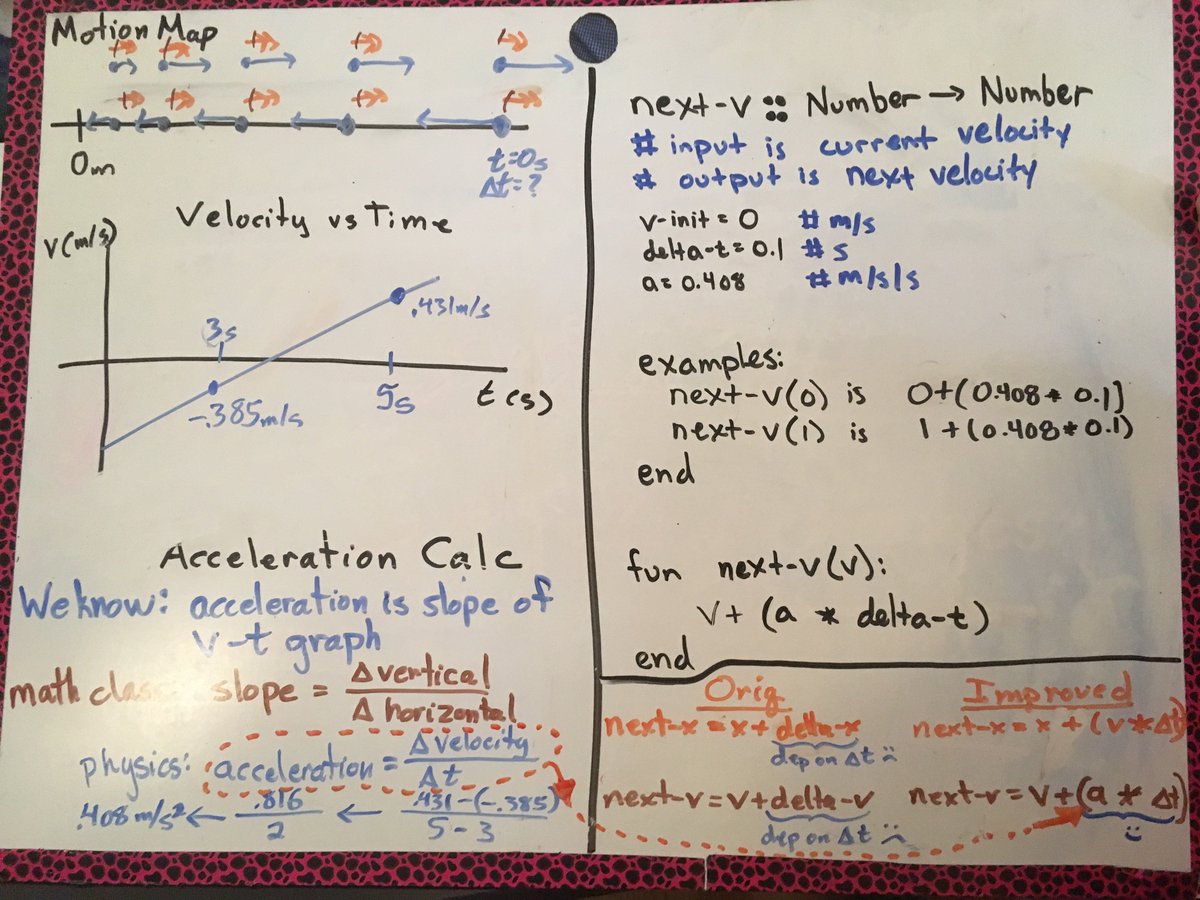 Motion Map
0m
t=0s
Δt=?
Velocity vs Time
v(m/s)
3s
.431m/s
-.385m/s
5s
t(s)
Acceleration Calc
We know: acceleration is slope of
v-t graph
math class: slope = Δvertical
Δ horizontal
physics: acceleration = Δvelocity
Δt
.408 m/s² ← .816 ← .431-(-.385)
2
5-3
next-v :: Number → Number
# input is current velocity
# output is next velocity
v-init = 0 # m/s
delta-t = 0.1 # s
a = 0.408 # m/s/s
examples:
next-v(0) is 0+(0.408 * 0.1)
next-v(1) is 1+(0.408*0.1)
end
fun next-v(v):
v+ (a * delta-t)
end
Orig
Improved
next-x = x + delta-x
next-x = x + (v*Δt)
dep on Δt :(
next-v = v+delta-v
next-v = v+(a * Δt)
dep on Δt :(
:)